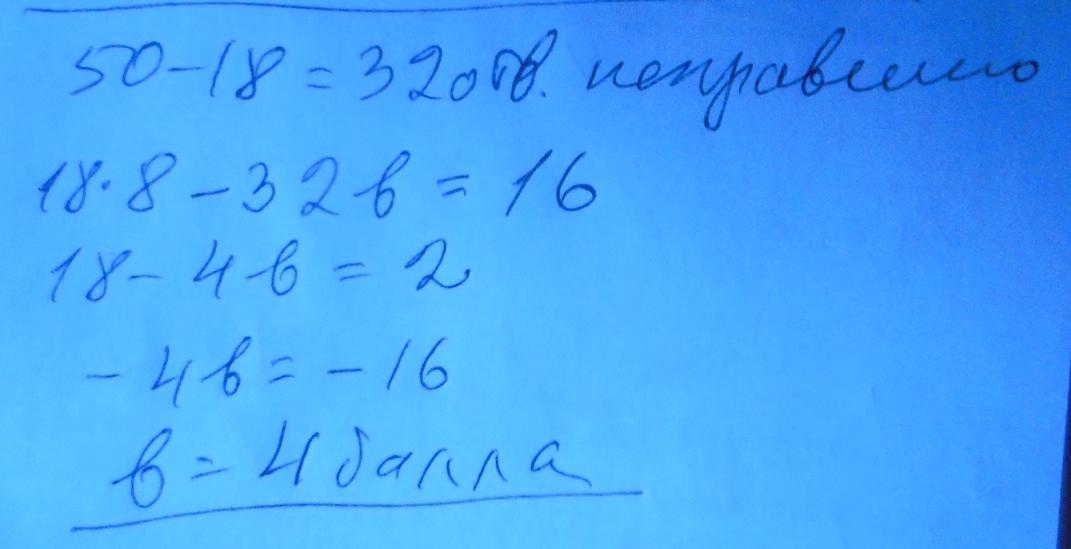 50-18=32 отв. неправильно
18·8-32в=16
18-4в=2
-4в=-16
в=4 балла